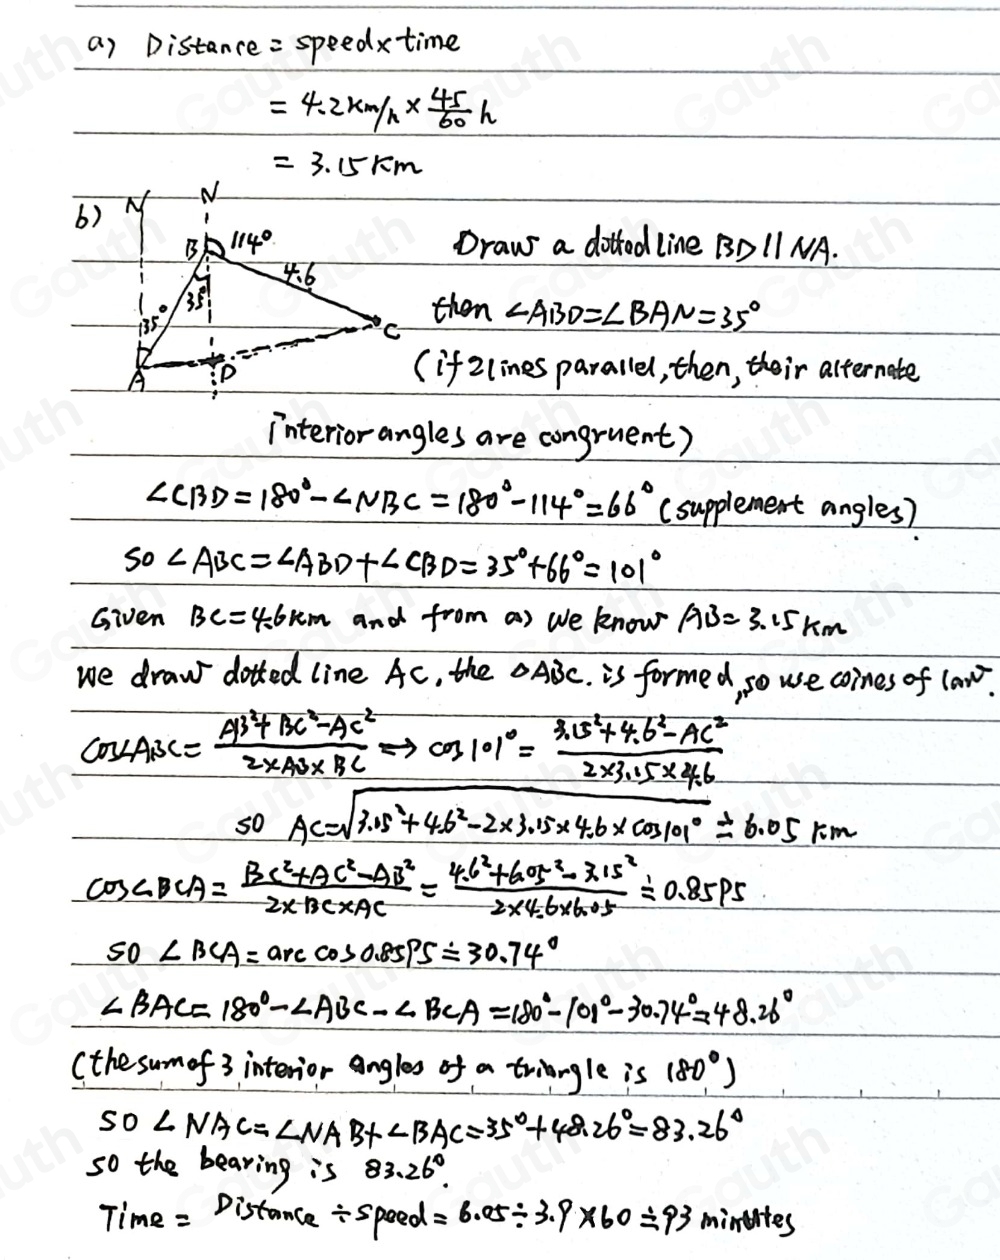 a) Distance = speed × time
= 4.2 km/h × 45/60 h
= 3.15 km
b)
N N
B 114°
4.6
35°
35°
C
A D
Draw a dotted line BD || NA.
then ∠ABD = ∠BAN = 35°
(if 2 lines parallel, then, their alternate
interior angles are congruent)
∠CBD = 180° - ∠NBC = 180° - 114° = 66° (supplement angles)
so ∠ABC = ∠ABD + ∠CBD = 35° + 66° = 101°
Given BC = 4.6 km and from a) we know AB = 3.15 km
We draw dotted line AC, the △ABC. is formed, so we coines of law.
cos∠ABC = (AB² + BC² - AC²) / (2 × AB × BC) ⇔ cos 101° = (3.15² + 4.6² - AC²) / (2 × 3.15 × 4.6)
so AC = √(3.15² + 4.6² - 2 × 3.15 × 4.6 × cos 101°) ≐ 6.05 km
cos∠BCA = (BC² + AC² - AB²) / (2 × BC × AC) = (4.6² + 6.05² - 3.15²) / (2 × 4.6 × 6.05) ≐ 0.8595
so ∠BCA = arc cos 0.8595 ≐ 30.74°
∠BAC = 180° - ∠ABC - ∠BCA = 180° - 101° - 30.74° = 48.26°
(the sum of 3 interior angles of a triangle is 180°)
so ∠NAC = ∠NAB + ∠BAC = 35° + 48.26° = 83.26°
so the bearing is 83.26°.
Time = Distance ÷ speed = 6.05 ÷ 3.9 × 60 ≐ 93 minutes
Gauth